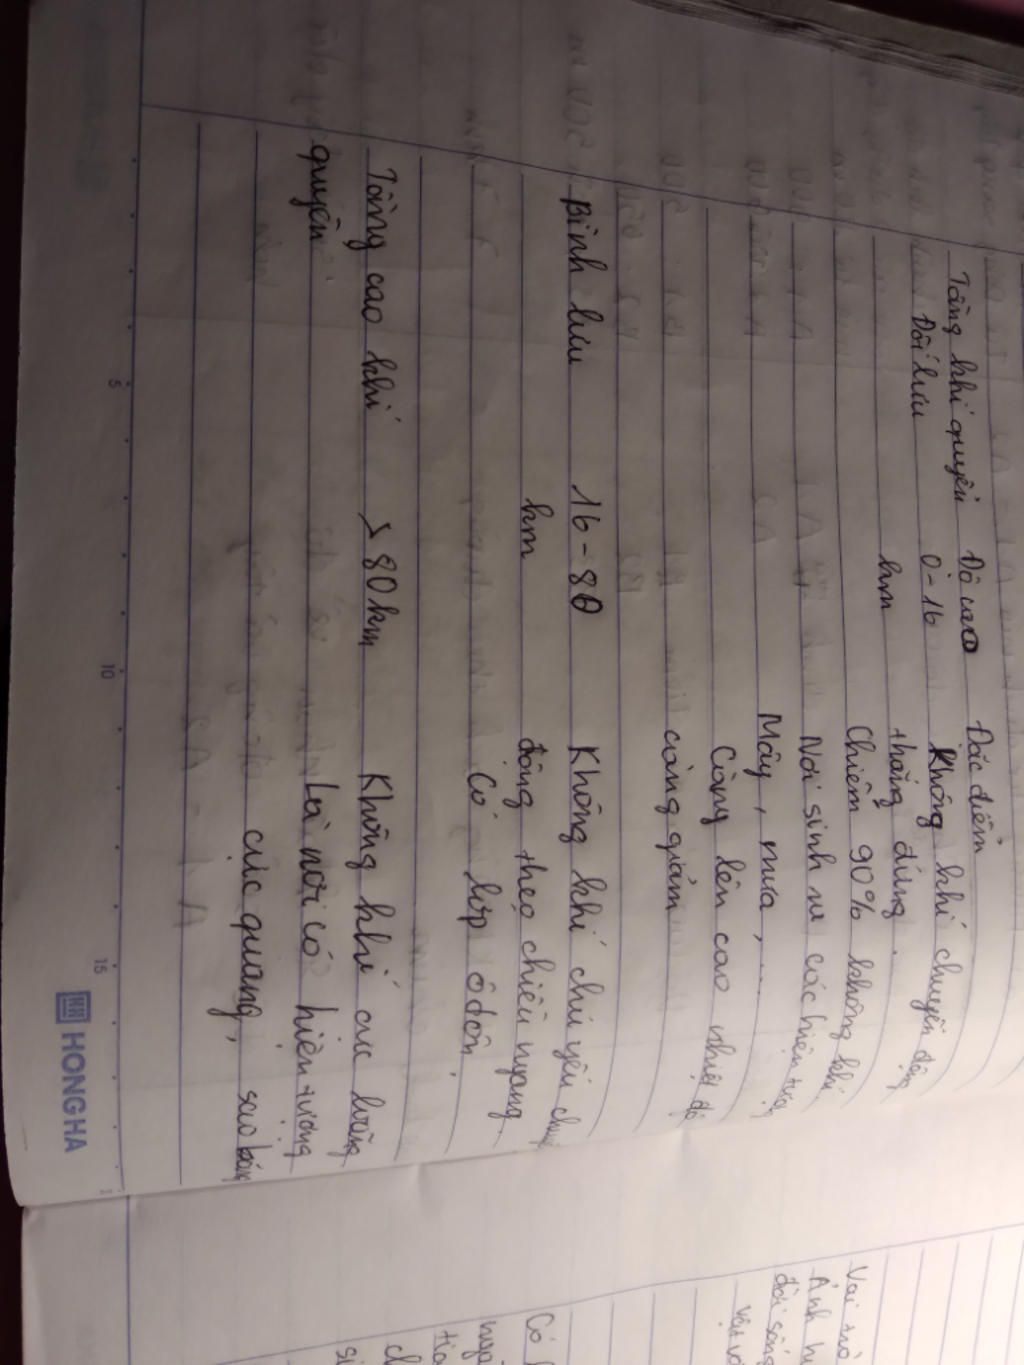 Tầng khí quyển Độ cao Đặc điểm
Đối lưu 0-16 Không khí chuyển động
km thẳng đứng.
Chiếm 90% không khí
Nơi sinh ra các hiện tượng
Mây, mưa, ....
Càng lên cao nhiệt độ
càng giảm
Bình lưu 16-80 Không khí chủ yếu chuyể
km động theo chiều ngang
Có lớp ôdôn.
Tầng cao khí >80km Không khí cực loãng
quyển Là nơi có hiện tượng
cực quang, sao băng
5
10
15
HH HONGHA
Vai trò
Ảnh hư
đời sống
Có l
ngo